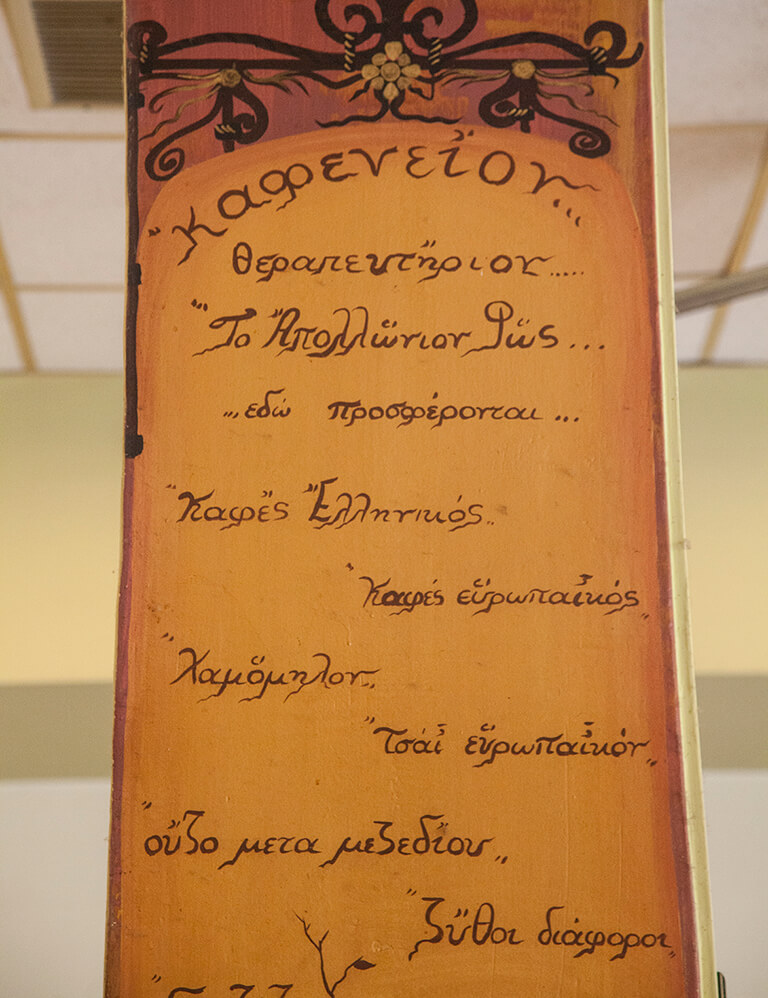 "Καφενεῖον...
θεραπευτήριον.....
"Το Ἀπολλώνιον Φῶς...
...εδώ προσφέρονται...
"Καφὲς Ἑλληνικός"
"Καφές εὔρωπαϊκός"
"Χαμόμηλον"
"Τσάϊ εὔρωπαϊκόν"
"οὖζο μετα μεζεδίου"
"ζῦθοι διάφοροι"